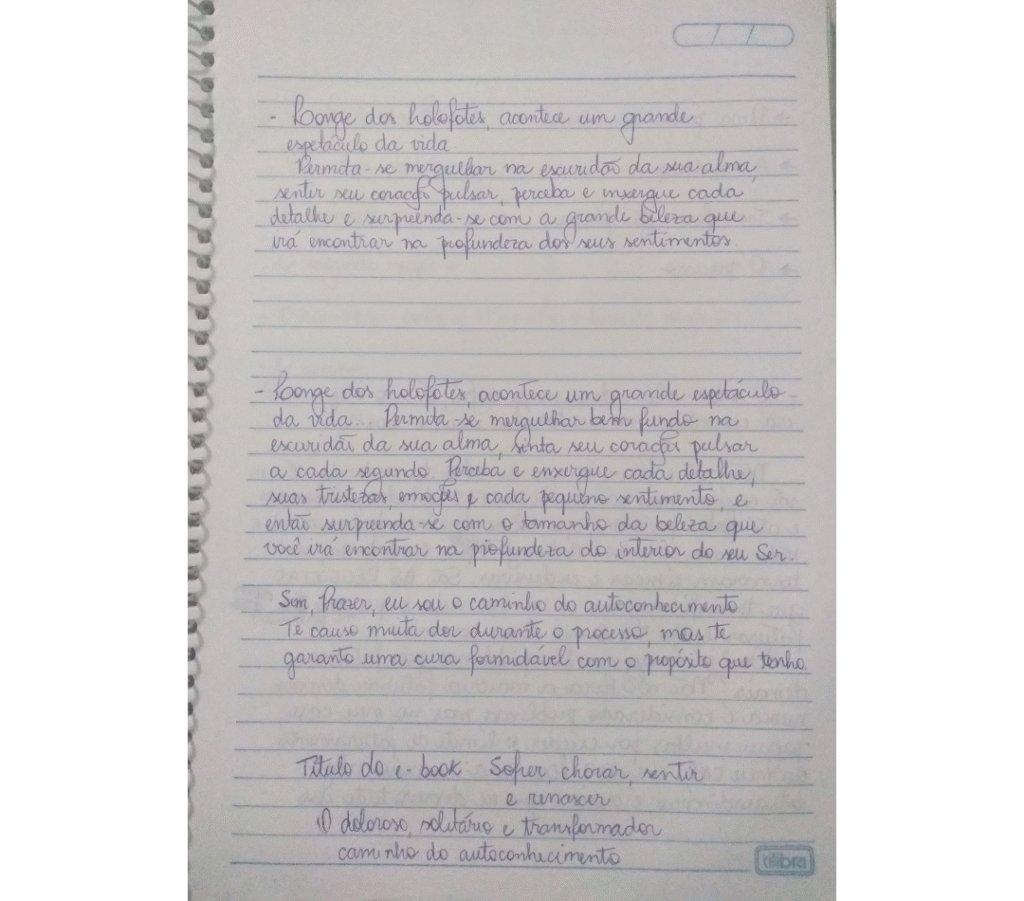 - Longe dos holofotes, acontece um grande
espetáculo da vida
Permita-se mergulhar na escuridão da sua alma,
sentir seu coração pulsar, perceba e inxergue cada
detalhe e surpreenda-se com a grande beleza que
irá encontrar na profundeza dos seus sentimentos
- Longe dos holofotes, acontece um grande espetáculo
da vida. Permita-se mergulhar bem fundo na
escuridão da sua alma, sinta seu coração pulsar
a cada segundo Perceba e enxergue cada detalhe,
suas tristezas emoções e cada pequeno sentimento, e
então surpreenda-se com o tamanho da beleza que
você irá encontrar na profundeza do interior do seu Ser.
Sim, Prazer, eu sou o caminho do autoconhecimento
Te causo muita dor durante o processo, mas te
garanto uma cura formidável com o propósito que tenho.
Título do e-book Sofrer, chorar, sentir
e renascer
O doloroso, solitário e transformador
caminho do autoconhecimento
tilibra